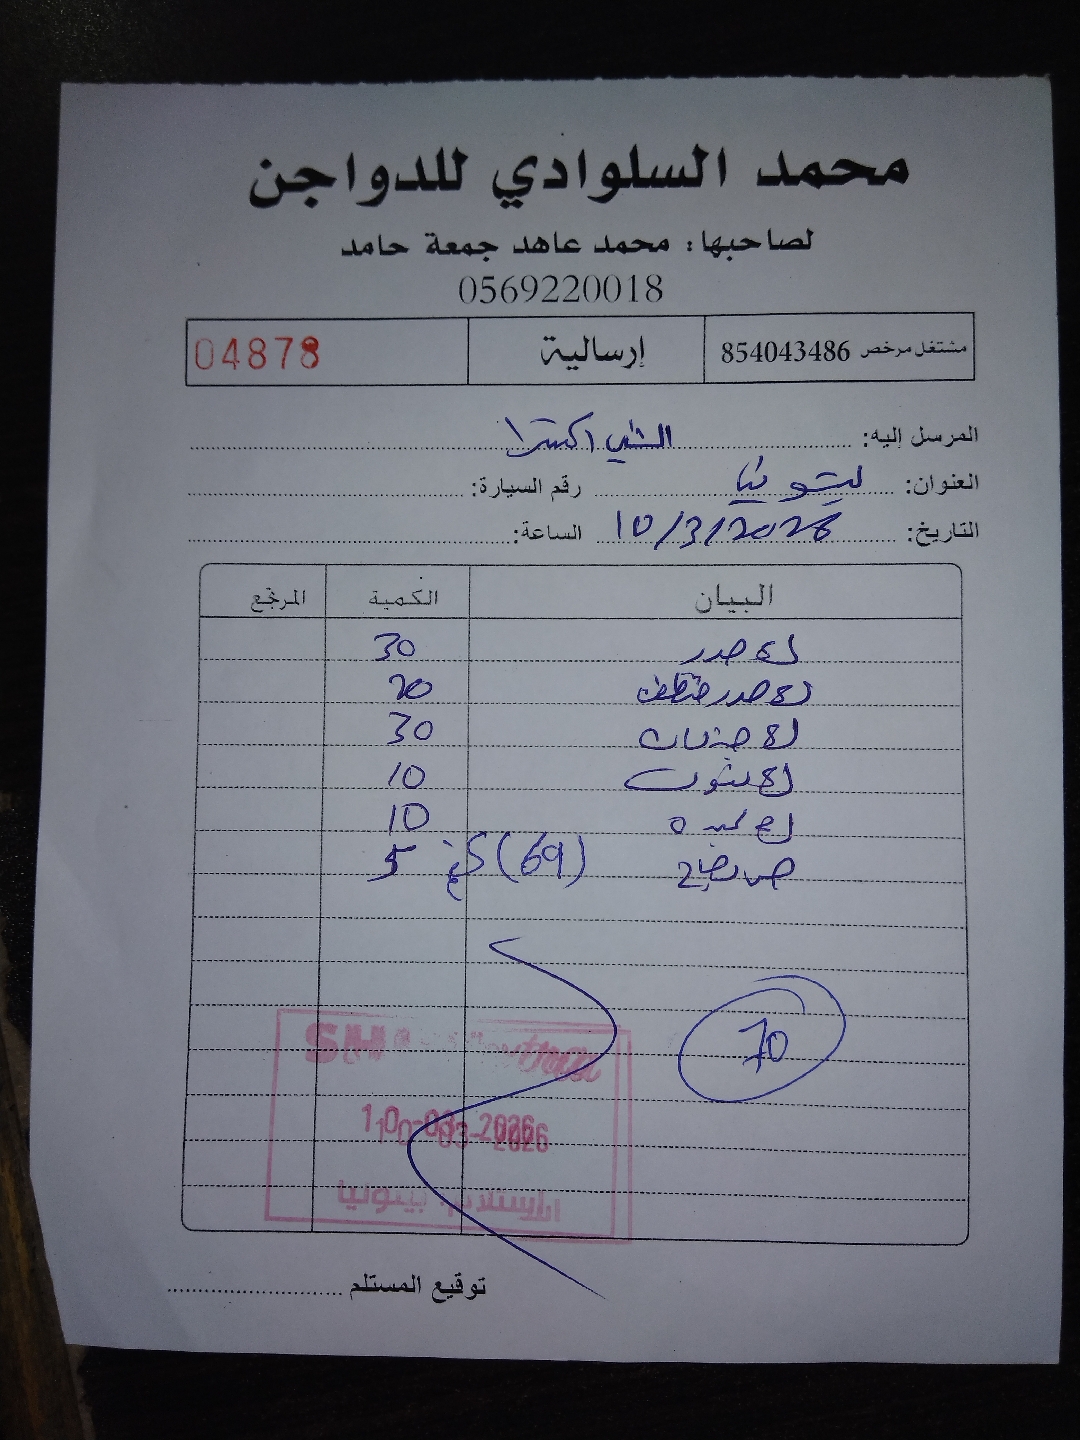 محمد السلوادي للدواجن
لصاحبها: محمد عاهد جمعة حامد
0569220018
مشتغل مرخص 854043486 إرسالية 04878
المرسل إليه: الشني اكسترا
العنوان: بيتونيا رقم السيارة:
التاريخ: 10/3/2026 الساعة:
البيان الكمية المرتجع
صدر 30
صدر 20
30
10
كبدة 10
(69) كغ 5
70
SH
10-03-2026
بيتونيا
توقيع المستلم